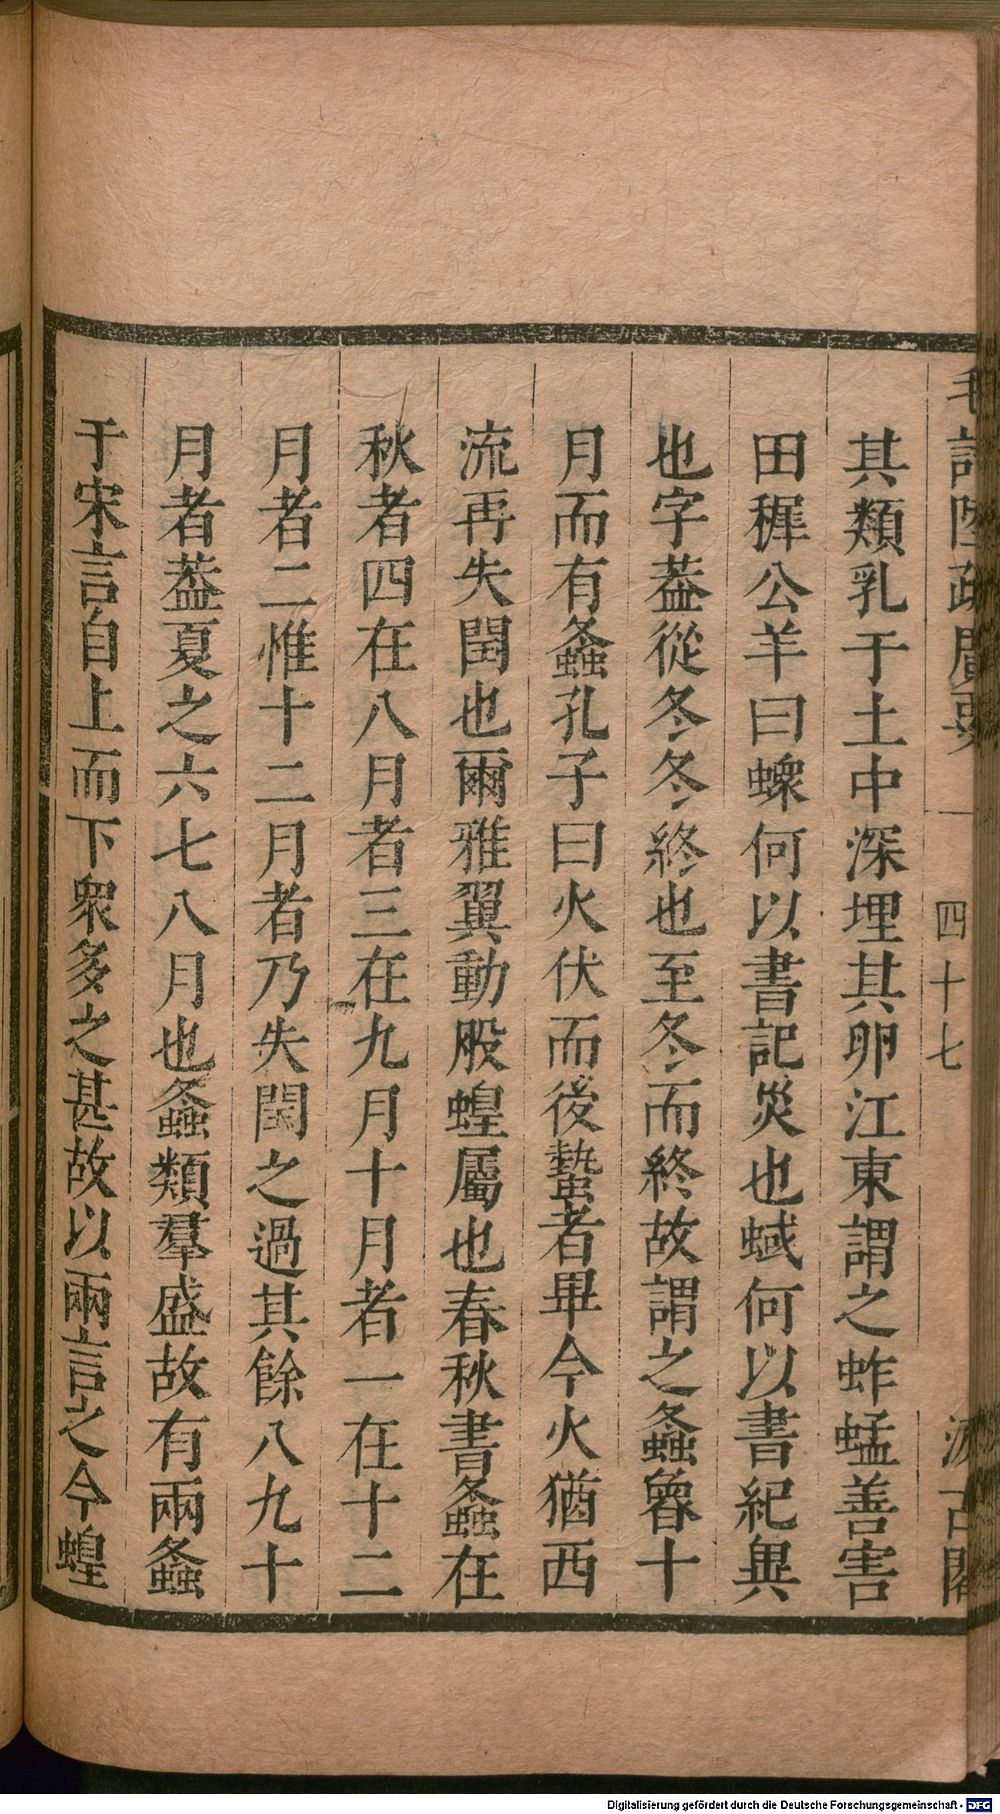 毛詩陸疏廣要 四十七 汲古閣
其類乳于土中深埋其卵江東謂之蚱蜢善害
田穉公羊曰蝝何以書記災也蜮何以書紀異
也字葢從冬冬終也至冬而終故謂之螽魯十
月而有螽孔子曰火伏而後蟄者畢今火猶西
流再失閏也爾雅翼動股蝗屬也春秋書螽在
秋者四在八月者三在九月十月者一在十二
月者二惟十二月者乃失閏之過其餘八九十
月者葢夏之六七八月也螽類羣盛故有兩螽
于宋言自上而下衆多之甚故以兩言之今蝗
Digitalisierung gefördert durch die Deutsche Forschungsgemeinschaft - DFG